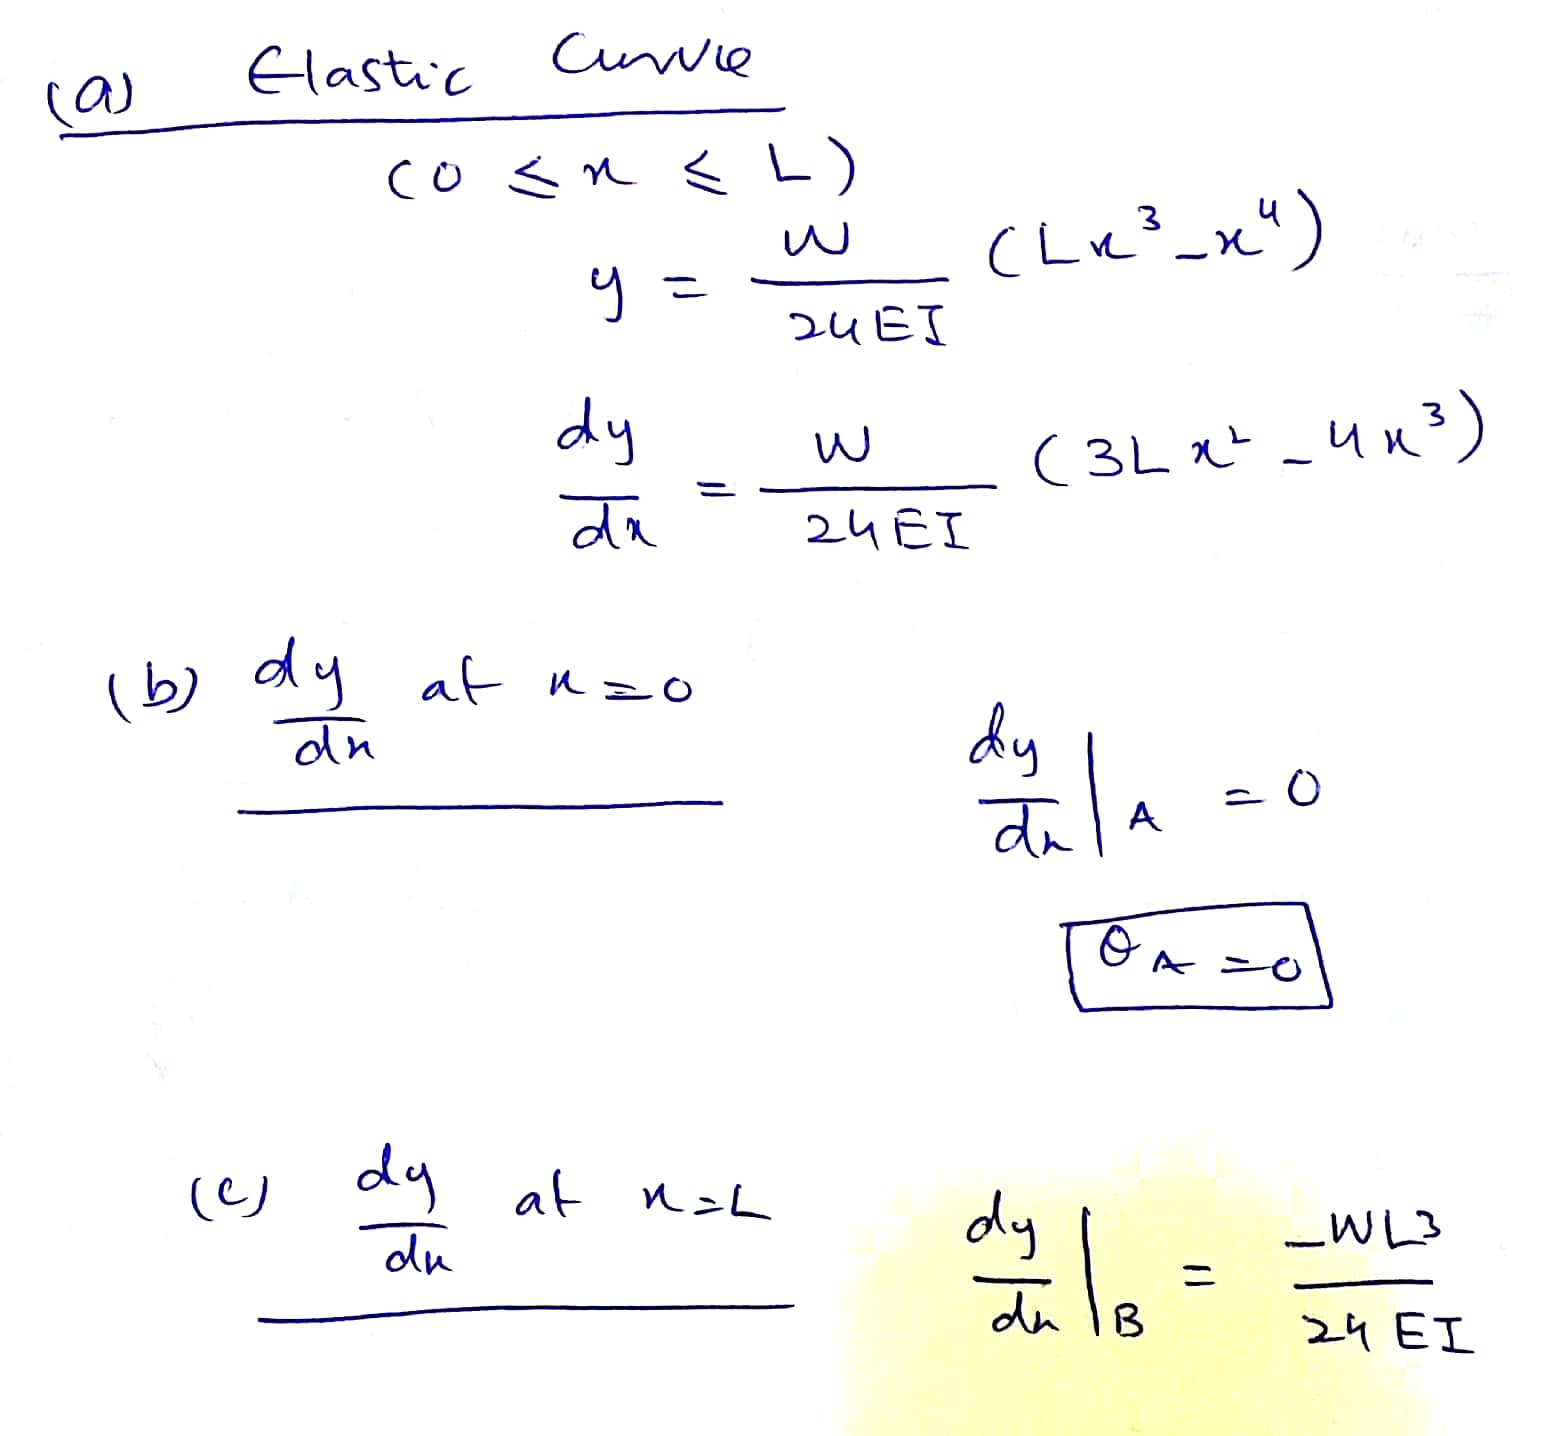 (a) Elastic Curve
(0 ≤ x ≤ L)
y = W/24EI (Lx³ - x⁴)
dy/dx = W/24EI (3Lx² - 4x³)
(b) dy/dx at x=0
dy/dx |A = 0
θA = 0
(c) dy/dx at x=L
dy/dx |B = -WL3/24EI